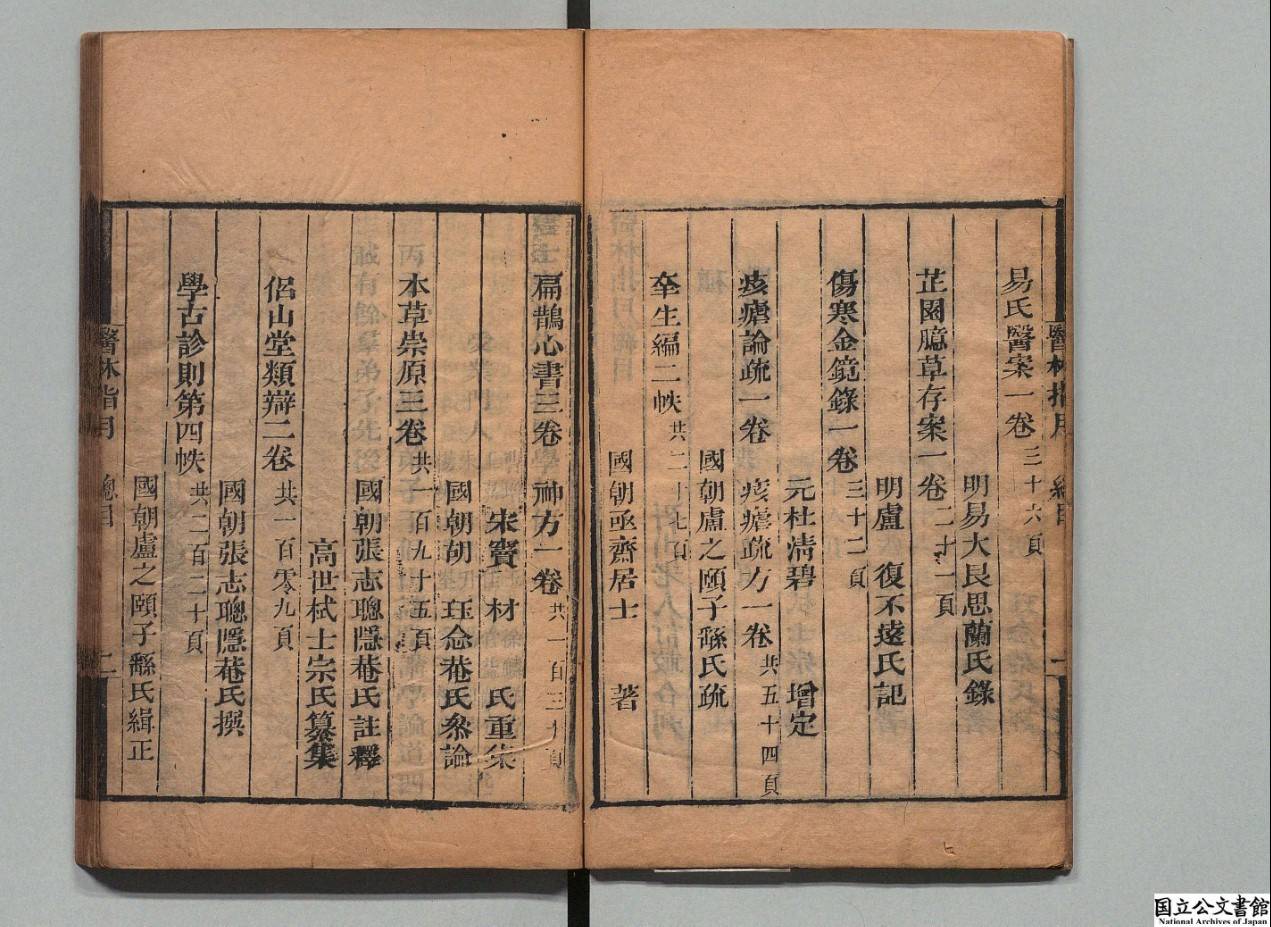 易氏醫案一卷三十六頁
明易大艮思蘭氏錄
芷園臆草存案一卷二十一頁
明盧復不遠氏記
傷寒金鏡錄一卷三十二頁
元杜清碧增定
痎瘧論疏一卷痎瘧疏方一卷共五十四頁
國朝盧之頤子繇氏疏
夲生編二帙共二十七頁
國朝亟齋居士著
扁鵲心書三卷神方一卷共一百三十頁
宋竇材氏重集
國朝胡珏念菴氏叅論
本草崇原三卷共一百九十五頁
國朝張志聰隱菴氏註釋
高世栻士宗氏纂集
侶山堂類辯二卷共一百零九頁
國朝張志聰隱菴氏撰
學古診則第四帙共二百二十頁
國朝盧之頤子繇氏緝正
醫林指月
總目
二
国立公文書館
National Archives of Japan